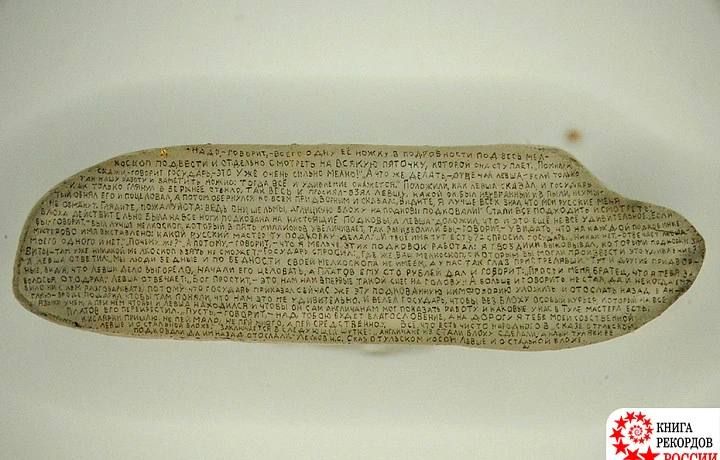 - НАДО,- ГОВОРИТ,- ВСЕГО ОДНУ ЕЁ НОЖКУ В ПОДРОБНОСТИ ПОД ВЕСЬ МЕЛ-
КОСКОП ПОДВЕСТИ И ОТДЕЛЬНО СМОТРЕТЬ НА ВСЯКУЮ ПЯТОЧКУ, КОТОРОЙ ОНА СТУПАЕТ.
ГОВОРИТ ГОСУДАРЬ,- ЭТО УЖЕ ОЧЕНЬ СИЛЬНО МЕЛКО! - А ЧТО ЖЕ ДЕЛАТЬ,- ОТВЕЧАЛ ЛЕВША,- ЕСЛИ ТОЛЬКО
ТАК НАШУ РАБОТУ И ЗАМЕТИТЬ МОЖНО: ТОГДА ВСЁ И УДИВЛЕНИЕ ОКАЖЕТСЯ." ПОЛОЖИЛИ, КАК ЛЕВША СКАЗАЛ, И ГОСУДАРЬ
КАК ТОЛЬКО ГЛЯНУЛ В ВЕРХНЕЕ СТЕКЛО, ТАК ВЕСЬ И ПРОСИЯЛ- ВЗЯЛ ЛЕВШУ, КАКОЙ ОН БЫЛ НЕУБРАННЫЙ И В ПЫЛИ, НЕУМЫ-
ТЫЙ, ОБНЯЛ ЕГО И ПОЦЕЛОВАЛ, А ПОТОМ ОБЕРНУЛСЯ КО ВСЕМ ПРИДВОРНЫМ И СКАЗАЛ: ВИДИТЕ, Я ЛУЧШЕ ВСЕХ ЗНАЛ, ЧТО МОИ РУССКИЕ МЕНЯ
НЕ ОБМАНУТ. ГЛЯДИТЕ, ПОЖАЛУЙСТА: ВЕДЬ ОНИ, ШЕЛЬМЫ, АГЛИЦКУЮ БЛОХУ НА ПОДКОВЫ ПОДКОВАЛИ! СТАЛИ ВСЕ ПОДХОДИТЬ И СМОТРЕТЬ:
БЛОХА ДЕЙСТВИТЕЛЬНО БЫЛА НА ВСЕ НОГИ ПОДКОВАНА НА НАСТОЯЩИЕ ПОДКОВЫ, А ЛЕВША ДОЛОЖИЛ, ЧТО И ЭТО ЕЩЁ НЕ ВСЁ УДИВИТЕЛЬНОЕ. ЕСЛИ
БЫ,- ГОВОРИТ,- БЫЛ ЛУЧШЕ МЕЛКОСКОП, КОТОРЫЙ В ПЯТЬ МИЛЛИОНОВ УВЕЛИЧИВАЕТ, ТАК ВЫ ИЗВОЛИЛИ БЫ,- ГОВОРИТ,- УВИДАТЬ, ЧТО НА КАЖДОЙ ПОДКОВИНЕ
МАСТЕРОВО ИМЯ ВЫСТАВЛЕНО: КАКОЙ РУССКИЙ МАСТЕР ТУ ПОДКОВКУ ДЕЛАЛ". И ТВОЁ ИМЯ ТУТ ЕСТЬ? - СПРОСИЛ ГОСУДАРЬ. НИКАК НЕТ,- ОТВЕЧАЕТ ЛЕВША,-
МОЕГО ОДНОГО И НЕТ. ПОЧЕМУ ЖЕ? - А ПОТОМУ,- ГОВОРИТ,- ЧТО Я МЕЛЬЧЕ ЭТИХ ПОДКОВОК РАБОТАЛ: Я ГВОЗДИКИ ВЫКОВЫВАЛ, КОТОРЫМИ ПОДКОВКИ ЗА-
БИТЫ,- ТАМ УЖЕ НИКАКОЙ МЕЛКОСКОП ВЗЯТЬ НЕ СМОЖЕТ. ГОСУДАРЬ СПРОСИЛ: ГДЕ ЖЕ ВАШ МЕЛКОСКОП, С КОТОРЫМ ВЫ МОГЛИ ПРОИЗВЕСТИ ЭТО УДИВЛЕНИЕ?
А ЛЕВША ОТВЕТИЛ: МЫ ЛЮДИ БЕДНЫЕ И ПО БЕДНОСТИ СВОЕЙ МЕЛКОСКОПА НЕ ИМЕЕМ, А У НАС ТАК ГЛАЗ ПРИСТРЕЛЯВШИ. ТУТ И ДРУГИЕ ПРИДВОР-
НЫЕ, ВИДЯ, ЧТО ЛЕВШИ ДЕЛО ВЫГОРЕЛО, НАЧАЛИ ЕГО ЦЕЛОВАТЬ, А ПЛАТОВ ЕМУ СТО РУБЛЕЙ ДАЛ И ГОВОРИТ: ПРОСТИ МЕНЯ, БРАТЕЦ, ЧТО Я ТЕБЯ ЗА
ВОЛОСЬЯ ОТОДРАЛ. ЛЕВША ОТВЕЧАЕТ: БОГ ПРОСТИТ,- ЭТО НАМ НЕ ВПЕРВЫЕ ТАКОЙ СНЕГ НА ГОЛОВУ. А БОЛЬШЕ И ГОВОРИТЬ НЕ СТАЛ, ДА И НЕКОГДА ЕМУ
БЫЛО НИ С КЕМ РАЗГОВАРИВАТЬ, ПОТОМУ ЧТО ГОСУДАРЬ ПРИКАЗАЛ СЕЙЧАС ЖЕ ЭТУ ПОДКОВАННУЮ НИМФОЗОРИЮ УЛОЖИТЬ И ОТОСЛАТЬ НАЗАД В АН-
ГЛИЮ- ВРОДЕ ПОДАРКА, ЧТОБЫ ТАМ ПОНЯЛИ, ЧТО НАМ ЭТО НЕ УДИВИТЕЛЬНО. И ВЕЛЕЛ ГОСУДАРЬ, ЧТОБЫ ВЁЗ БЛОХУ ОСОБЫЙ КУРЬЕР, КОТОРЫЙ НА ВСЕ
ЯЗЫКИ УЧЁН, А ПРИ НЁМ ЧТОБЫ И ЛЕВША НАХОДИЛСЯ И ЧТОБЫ ОН САМ АНГЛИЧАНАМ МОГ ПОКАЗАТЬ РАБОТУ И КАКОВЫЕ У НАС В ТУЛЕ МАСТЕРА ЕСТЬ.
ПЛАТОВ ЕГО ПЕРЕКРЕСТИЛ. ПУСТЬ,- ГОВОРИТ,- НАД ТОБОЮ БУДЕТ БЛАГОСЛОВЕНИЕ, А НА ДОРОГУ Я ТЕБЕ МОЕЙ СОБСТВЕННОЙ
КИСЛЯРКИ ПРИШЛЮ. НЕ ПЕЙ МАЛО, НЕ ПЕЙ МНОГО, А ПЕЙ СРЕДСТВЕННО.
ПОДКОВАЛИ ДА ИМ НАЗАД ОТОСЛАЛИ". ЛЕСКОВ Н.С. СКАЗ О ТУЛЬСКОМ КОСОМ ЛЕВШЕ И О СТАЛЬНОЙ БЛОХЕ.
КНИГА
РЕКОРДОВ
РОССИИ